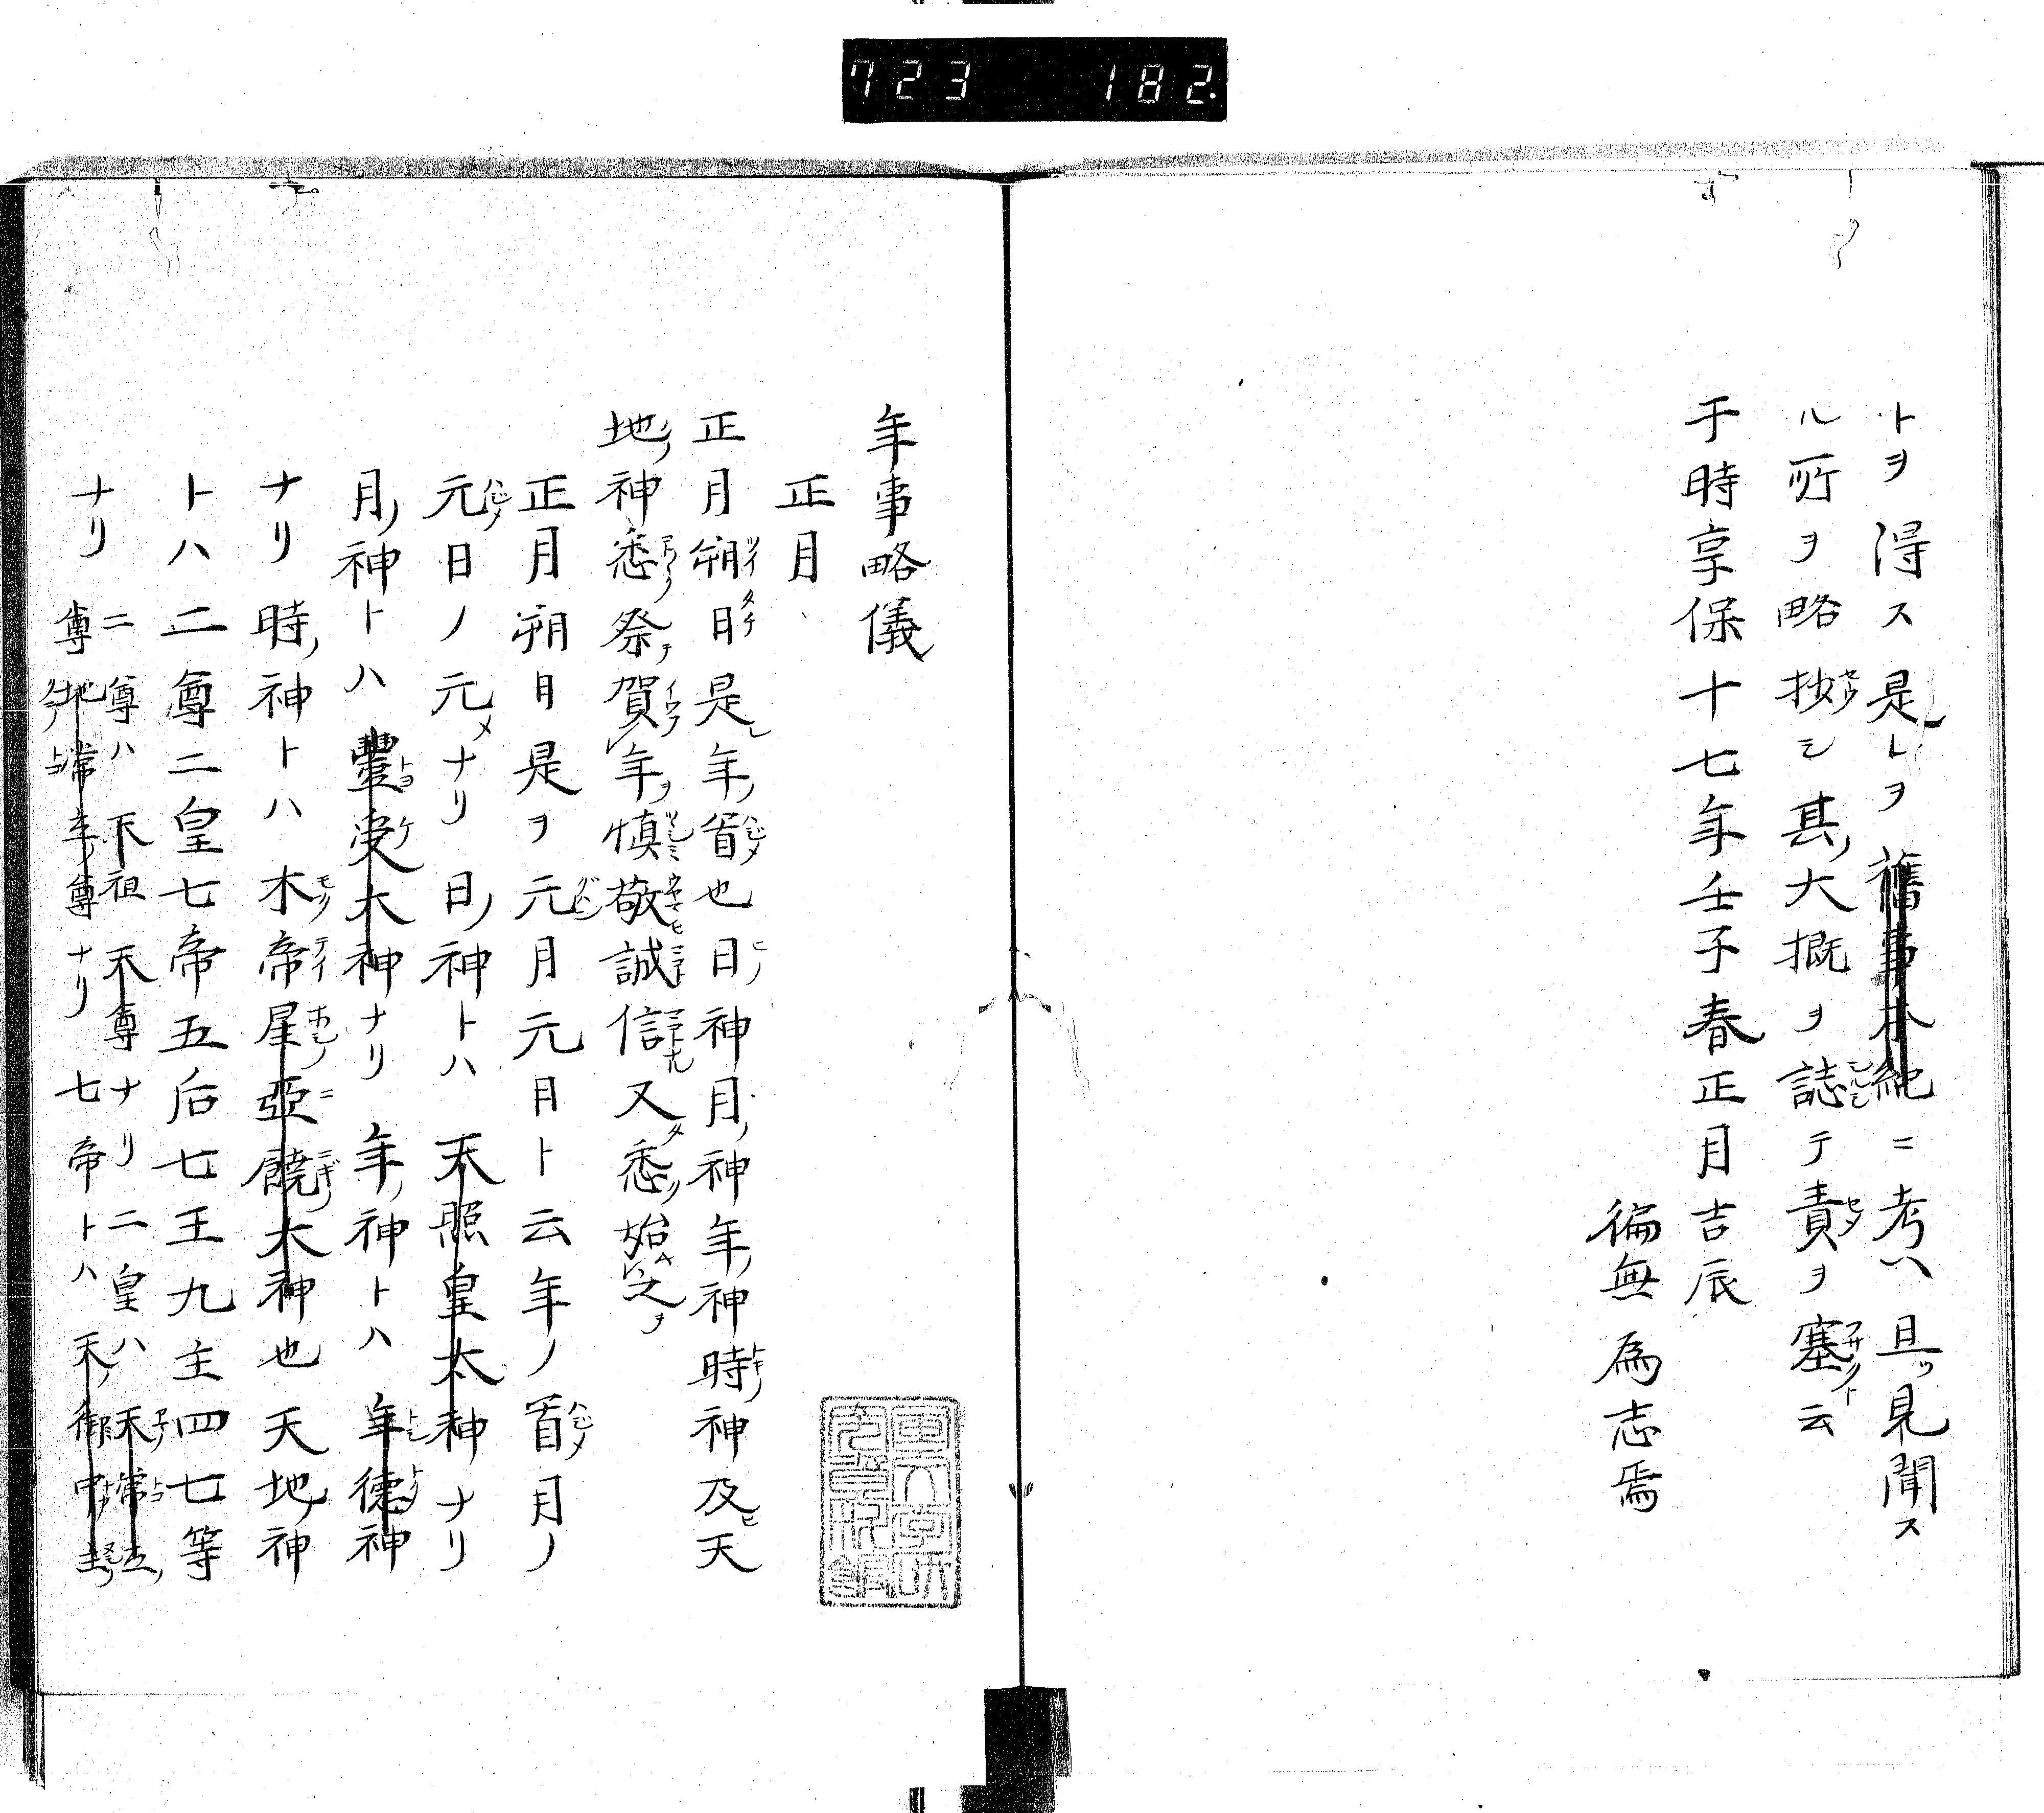 723 182
トヲ得ス是レヲ舊事本紀ニ考ヘ且ツ見聞ス
ル所ヲ略按シ其ノ大概ヲ誌テ責ヲ塞ント云
于時享保十七年壬子春正月吉辰
徧無為志焉
年事略儀
正月
正月朔日是年首也日神月神年神時神及天
地神悉祭賀年慎敬誠信又悉始之
正月朔日是ヲ元月元日ト云年ノ首月ノ
元日ノ元メナリ日神トハ天照皇太神ナリ
月神トハ豐受太神ナリ年神トハ年德神
ナリ時神トハ木帝星亞饒大神也天地神
トハ二尊二皇七帝五后七王九主四七等
ナリ二尊ハ下祖天尊ナリ二皇ハ天常立
尊地常立尊ナリ七帝トハ天御中主